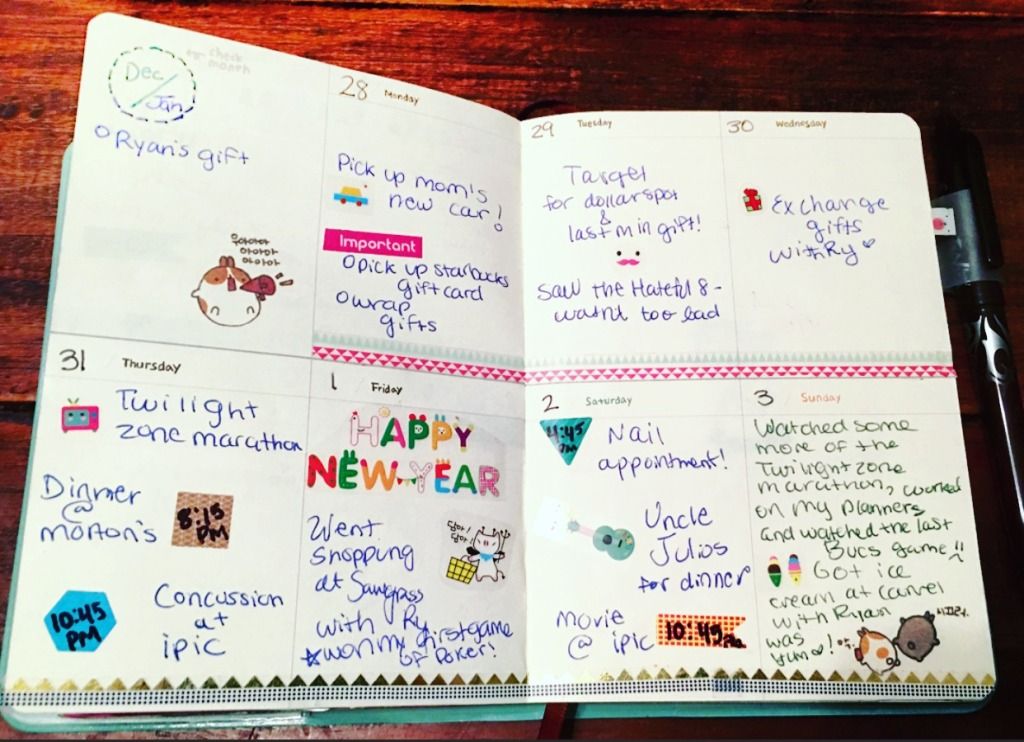 Dec/
Jan
check
month
o Ryan's gift
우아아아
아아아
아아아
28 Monday
Pick up mom's
new car!
Important
o pick up starbucks
giftcard
o wrap
gifts
29 Tuesday
Target
for dollarspot
&
last min gift!
Saw the Hateful 8 -
wasnt too bad
30 Wednesday
Exchange
gifts
with Ry
31 Thursday
Twilight
zone marathon
Dinner
@
morton's
8:15
PM
10:45
PM
Concussion
at
ipic
1 Friday
HAPPY
NEW YEAR
Went
Shopping
at Sawgrass
with Ry
won my first game
of Poker!
담아!
담아!
2 Saturday
4:45
PM
Nail
appointment!
Uncle
Julios
for dinner
movie
@ ipic
10:45 PM
3 Sunday
Watched some
more of the
Twilight zone
marathon, worked
on my planners
and watched the last
Bucs game!!
Got ice
cream at Carvel
with Ryan
was
yum!